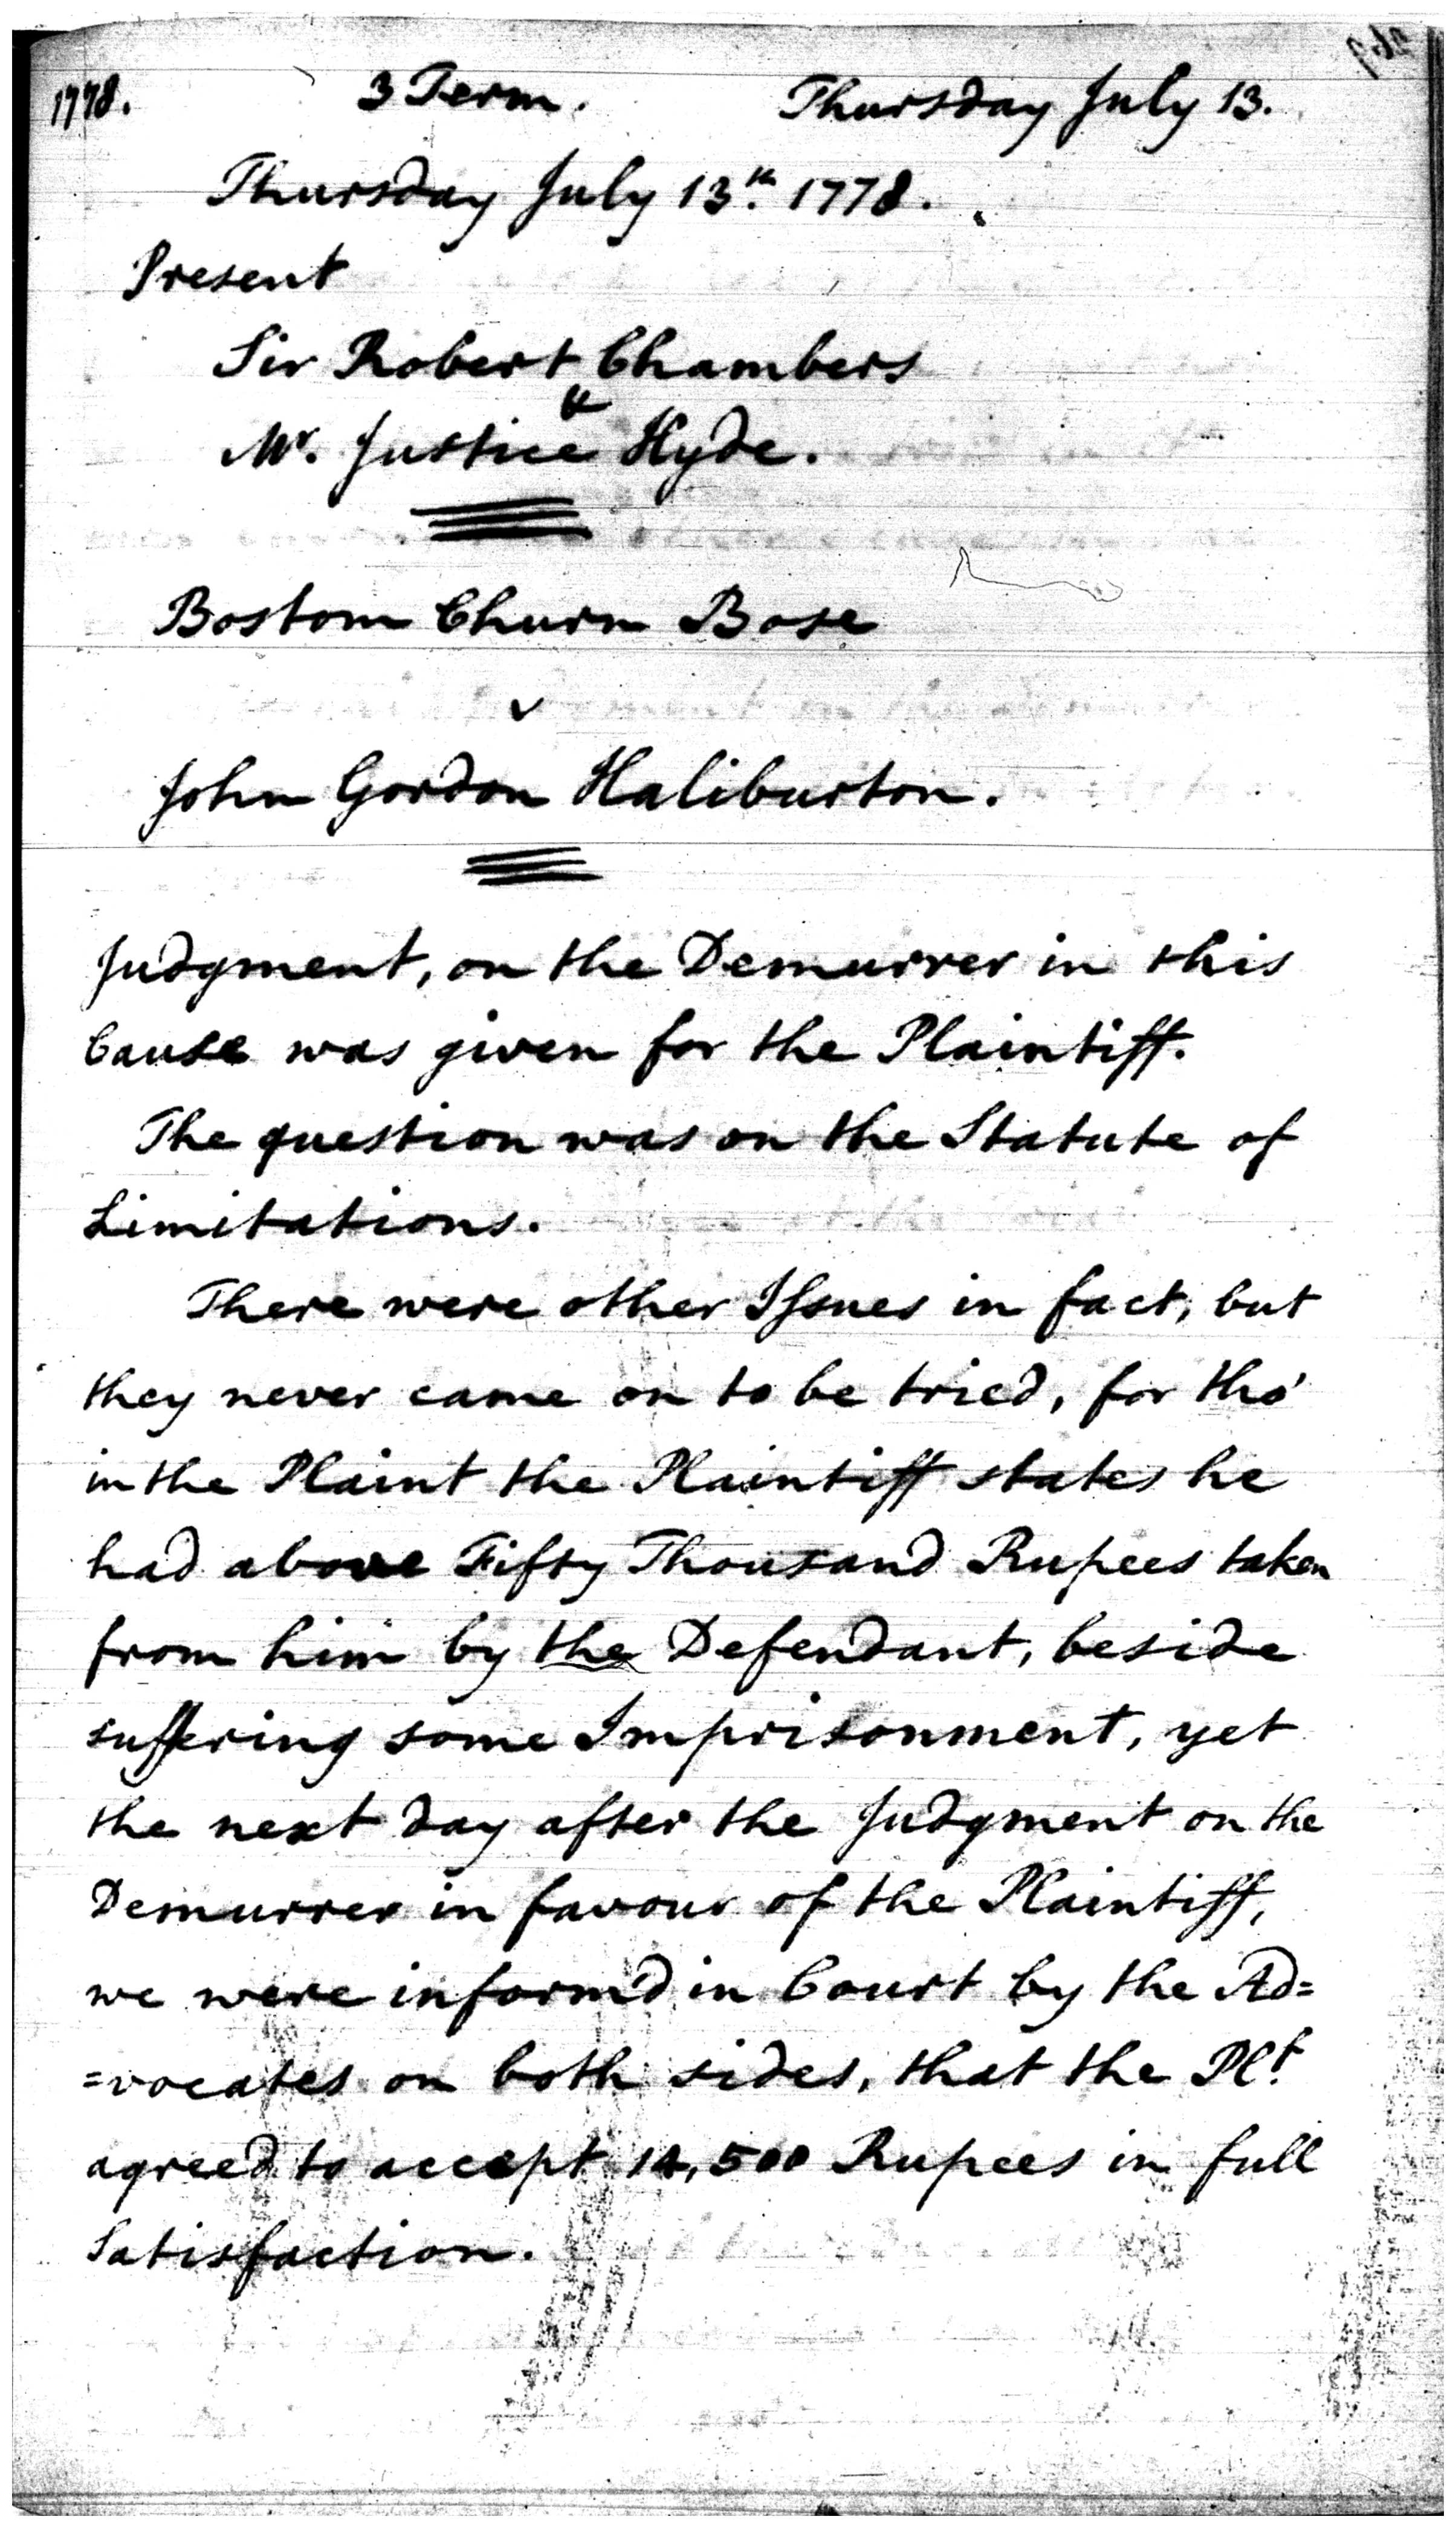 1778. 3 Term. Thursday July 13.
Thursday July 13th. 1778.
Present
Sir Robert Chambers
&
Mr. Justice Hyde.
Bostom Churn Bose
v
John Gordon Haliburton.
Judgment, on the Demurrer in this
Cause was given for the Plaintiff.
The question was on the Statute of
Limitations.
There were other Issues in fact, but
they never came on to be tried, for tho'
in the Plaint the Plaintiff states he
had above Fifty Thousand Rupees taken
from him by the Defendant, beside
suffering some Imprisonment, yet
the next day after the Judgment on the
Demurrer in favour of the Plaintiff,
we were inform'd in Court by the Ad=
=vocates on both sides, that the Plt.
agreed to accept 14,500 Rupees in full
Satisfaction.